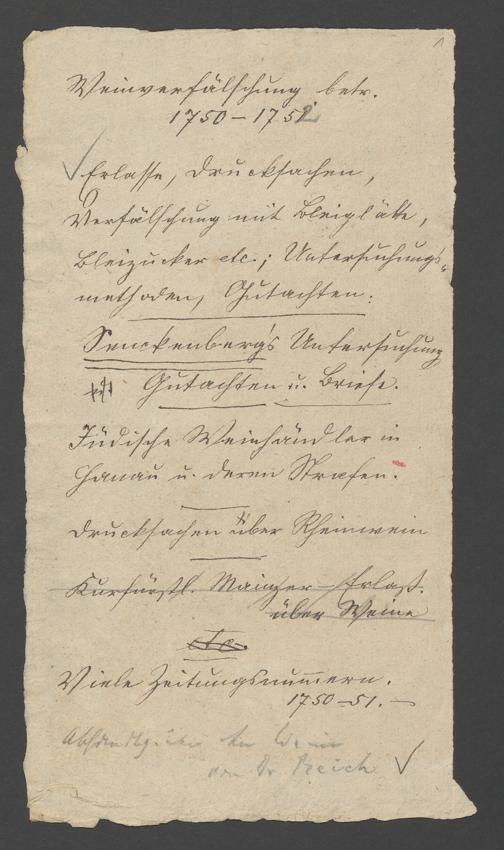 Weinverfälschung betr.
1750–1752
Erlasse, Drucksachen,
Verfälschung mit Bleiglätte,
Bleizucker etc.; Untersuchungs-
methoden, Gutachten.
Senckenberg's Untersuchung
Gutachten u. Briefe.
Jüdische Weinhändler in
Hanau u. deren Strafen.
Drucksachen über Rheinwein
Kurfürstl. Mainzer-Erlaß.
über Weine
etc.
Viele Zeitungsnummern.
1750–51.–
von Dr Reich